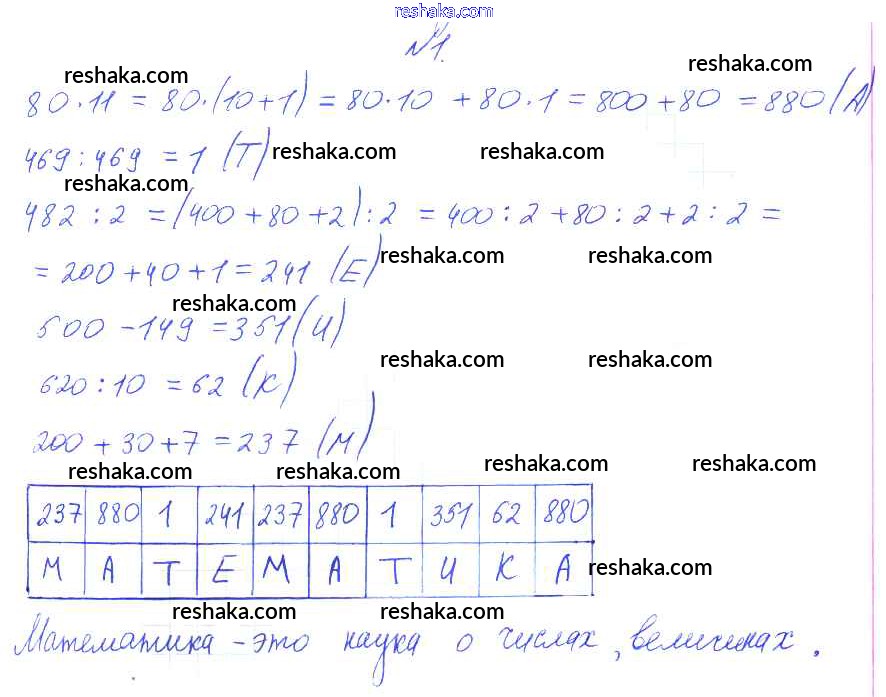 reshaka.com
№1.
reshaka.com reshaka.com
80·11 = 80·(10+1) = 80·10 + 80·1 = 800+80 = 880 (А)
469:469 = 1 (Т) reshaka.com reshaka.com
reshaka.com
482 : 2 = (400+80+2) : 2 = 400 : 2 + 80 : 2 + 2 : 2 =
= 200+40+1 = 241 (Е) reshaka.com reshaka.com
reshaka.com
500 - 149 = 351 (И)
reshaka.com reshaka.com
620 : 10 = 62 (К)
200 + 30 + 7 = 237 (М)
reshaka.com reshaka.com reshaka.com reshaka.com
237 880 1 241 237 880 1 351 62 880
М А Т Е М А Т И К А reshaka.com
reshaka.com reshaka.com
Математика - это наука о числах, величинах.